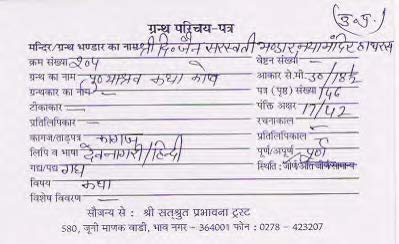 (उ.प्र.)
ग्रन्थ परिचय-पत्र
मन्दिर/ग्रन्थ भण्डार का नाम श्री दि. जैन सरस्वती भण्डार नया मंदिर हाथरस
क्रम संख्या 204 वेष्टन संख्या
ग्रन्थ का नाम पुण्याश्रव कथा कोष आकार से.मी. 30/18½
ग्रन्थकार का नाम — पत्र (पृष्ठ) संख्या 146
टीकाकार — पंक्ति अक्षर 17/42
प्रतिलिपिकार — रचनाकाल —
कागज/ताड़पत्र कागज प्रतिलिपिकाल —
लिपि व भाषा देवनागरी/हिन्दी पूर्ण/अपूर्ण पूर्ण
गद्य/पद्य गद्य स्थिति : जीर्ण/अति जीर्ण/सामान्य
विषय कथा
विशेष विवरण —
सौजन्य से : श्री सत्श्रुत प्रभावना ट्रस्ट
580, जूनी माणक वाडी, भाव नगर - 364001 फोन : 0278 - 423207